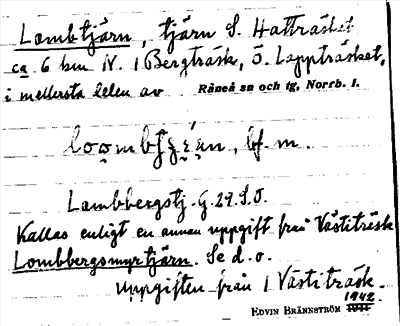 Lombtjärn, tjärn S. Hatträsket
ca 6 km N. I Bergträsk, Ö. Lappträsket,
i mellersta delen av Råneå sn och tg, Norrb. l.
bf. m.
Lombbergstj. G. 29. S.O.
Kallas enligt en annan uppgift från Västiträsk
Lombbergsmyrtjärn. Se d. o.
Uppgiften från I Västiträsk.
1942.
EDVIN BRÄNNSTRÖM 1941.